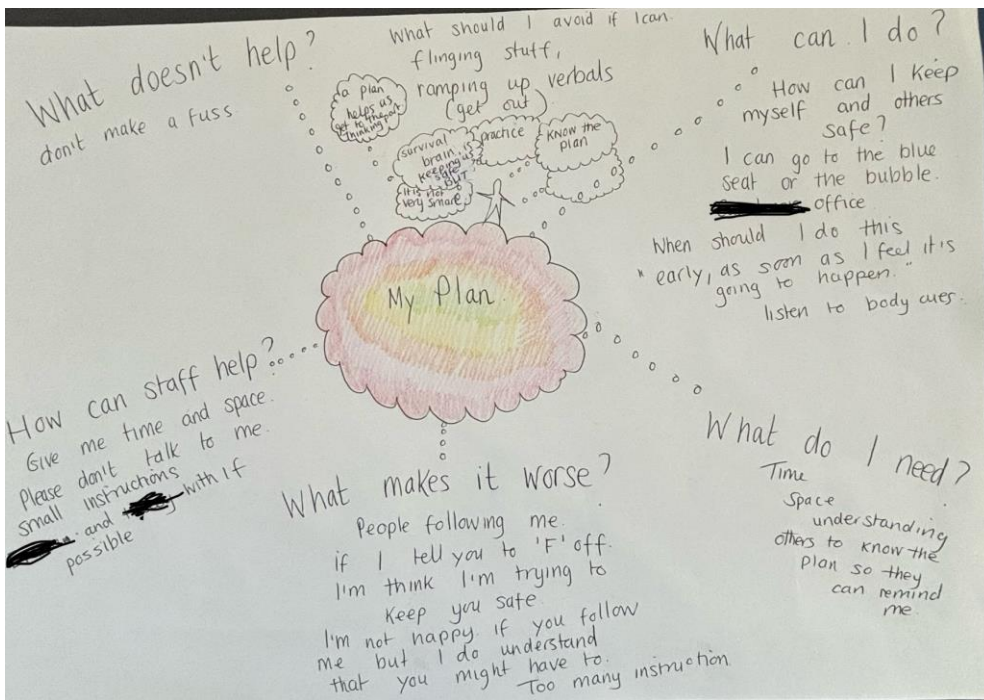 What doesn't help?
don't make a fuss
What should I avoid if I can.
flinging stuff,
ramping up verbals
(get out)
a plan
helps us
get to the
thinking part
survival
brain, is
keeping us
safe
BUT
It is not
very smart
practice
Know the
plan
What can I do?
How can I keep
myself and others
safe?
I can go to the blue
seat or the bubble.
office
When should I do this
"early, as soon as I feel it is
going to happen."
listen to body cues.
My Plan.
How can staff help?
Give me time and space.
Please don't talk to me.
Small instructions
and with if
possible
What makes it worse?
People following me.
if I tell you to 'F' off.
I'm think I'm trying to
keep you safe
I'm not happy. if you follow
me but I do understand
that you might have to.
Too many instruction
What do I need?
Time
Space
understanding
others to know the
plan so they
can remind
me.